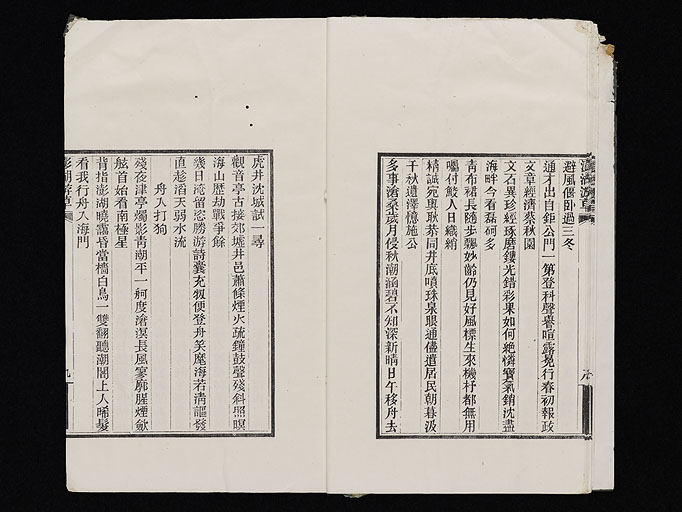 澎湖游草
避風偃臥過三冬
通才出自鉅公門一第登科聲譽喧露冕行春初報政
文章經濟蔡秋園
文石異珍經琢磨鏤光錯彩果如何絶憐寶氣銷沈盡
海畔今看磊砢多
青布裙長隨步飄妙齡仍見好風標生來機杼都無用
囑付鮫人日織綃
精誠宛與耿恭同井底噴珠泉眼通儘遣居民朝暮汲
千秋遺澤憶施公
多事滄桑歲月侵秋潮涵碧不知深新晴日午移舟去
虎井沈城試一尋
觀音亭古接郊墟井邑蕭條煙火疏鐘鼓聲殘斜照暝
海山歷劫戰爭餘
幾日淹留恣勝游詩囊充牣便登舟笑麾海若淸謳發
直趁滔天弱水流
舟入打狗
殘夜津亭燭影靑潮平一舸度滄溟長風寥廓腥煙斂
舷首始看南極星
背指澎湖曉靄昏當檣白鳥一雙翻聽潮閣上人晞髮
看我行舟入海門
澎湖游草
九